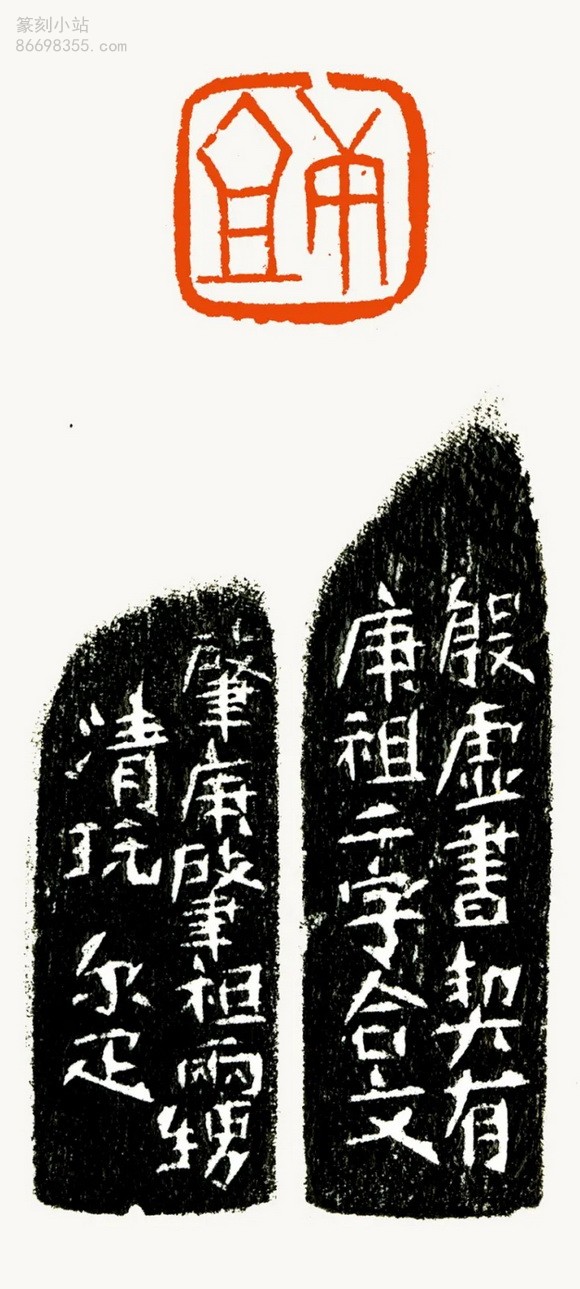 篆刻小站
86698355.com
殷虚書契有
庚祖二字合文
肇庚肇祖兩甥
清玩 尔疋